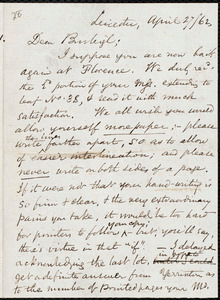 Leicester, April 27/62
Dear Burleigh,
I suppose you are now back
again at Florence. We duly rec.d
the portion of your Mss. extending to
leaf No. 38, & read it with much
satisfaction. We all wish you would
allow yourself more paper;— please
write farther apart, so as to allow
of easier interlineation; and please
never write on both sides of a page.
If it were not that your hand-writing is
so firm & clear, & the very extraordinary
pains you take, it would be too hard
for printers to follow you;
there's virtue in that "if" — I delayed
acknowledging the last lot,
get a definite answer from printers as
to the number of printed pages your Ms.